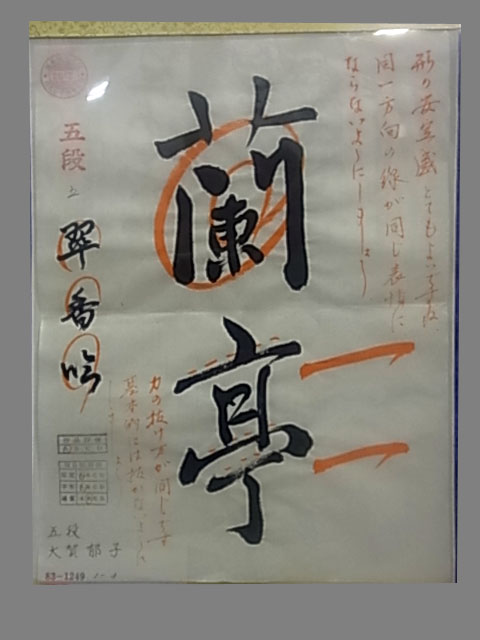 形の安定感とてもよいですね。
同一方向の線が同じ表情に
ならないようにしましょう
蘭亭
力の抜け方が同じです
基本的には抜かないように
しましょう
五段
上
翠香吟
五段
大賀郁子
63-1249